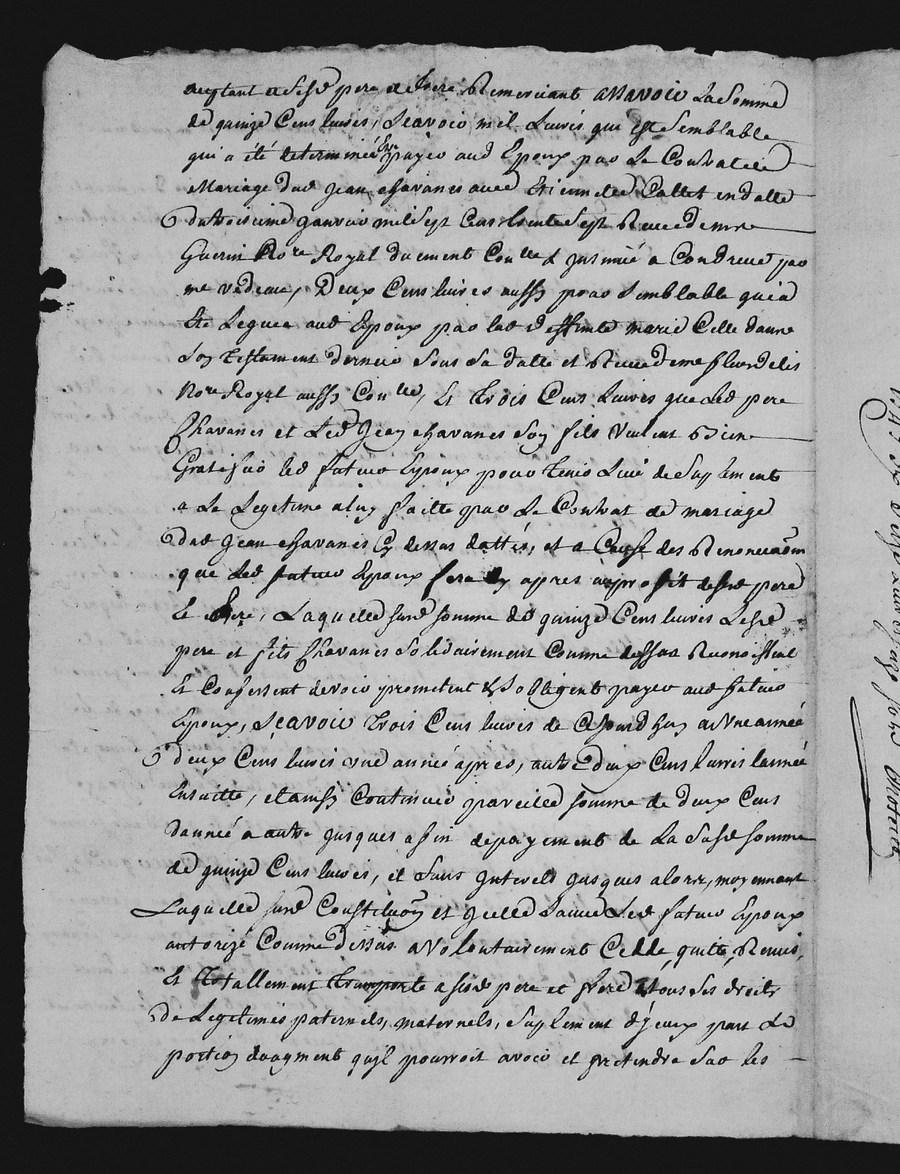 acceptant de sesd pere et frere Remerciant assavoir La Somme
de quinze Cens livres, Scavoir mil Livres que Est Semblable
qui a été determinée Estre payée aud Epoux par Le Contrat de
Mariage dud Jean Chavanes avec Etiennette Pallet en datte
du troisieme Janvier mil Sept Cens trente Sept Receu de me
Guerin No.re Royal duement Con.lle & Insinué a Condrieu par
me vadeau, Deux Cens livres aussy pour semblable quia
Eté Leguée aud Epoux par lad deffunte marie Celle danne
Son Testament dernier Sous Sa datte et Receu de me fleurdelis
No.re Royal aussy Con.llé, Et Trois Cens Livres que Led pere
Chavanes et Led Jean Chavanes Son fils veulent Bien
Gratifier led futur Epoux pour Tenir Lieu de Suplement
a Le Legitime a luy faitte par Le Contrat de mariage
Dud Jean Chavanes Cy dessus datté, et a Cause des Renonciaon
que Led futur Epoux fera Cy apres au profit desesd pere
Et frere, Laquelle susd somme de quinze Cens livres Lesd
pere et fils Chavanes Solidairement Comme dessus Reconoissent
Et Confessent devoir promettent & S'obligent payer aud futur
Epoux, Scavoir Trois Cens livres de Cejourdhuy a Une année
deux Cens livres une année apres, autre deux Cens livres lannée
Ensuitte, et ainsy Continuer pareille somme de deux Cens
dannée a autre jusques a fin depayement de La Susd somme
de quinze Cens livres, et Sans Interets jusques alors, moyennant
Laquelle susd Constitu͠on et Icelle Sauve Led futur Epoux
autorizé Comme Dessus a volontairement Cédé, quitté, Remis,
Et Totallement Transporté a sesd pere et frere Tous Ses droits
De Legitimes paternels, maternels, Suplement d'jceux part Et
portion daugment qu'jl pourroit avoir et pretendre Sur les